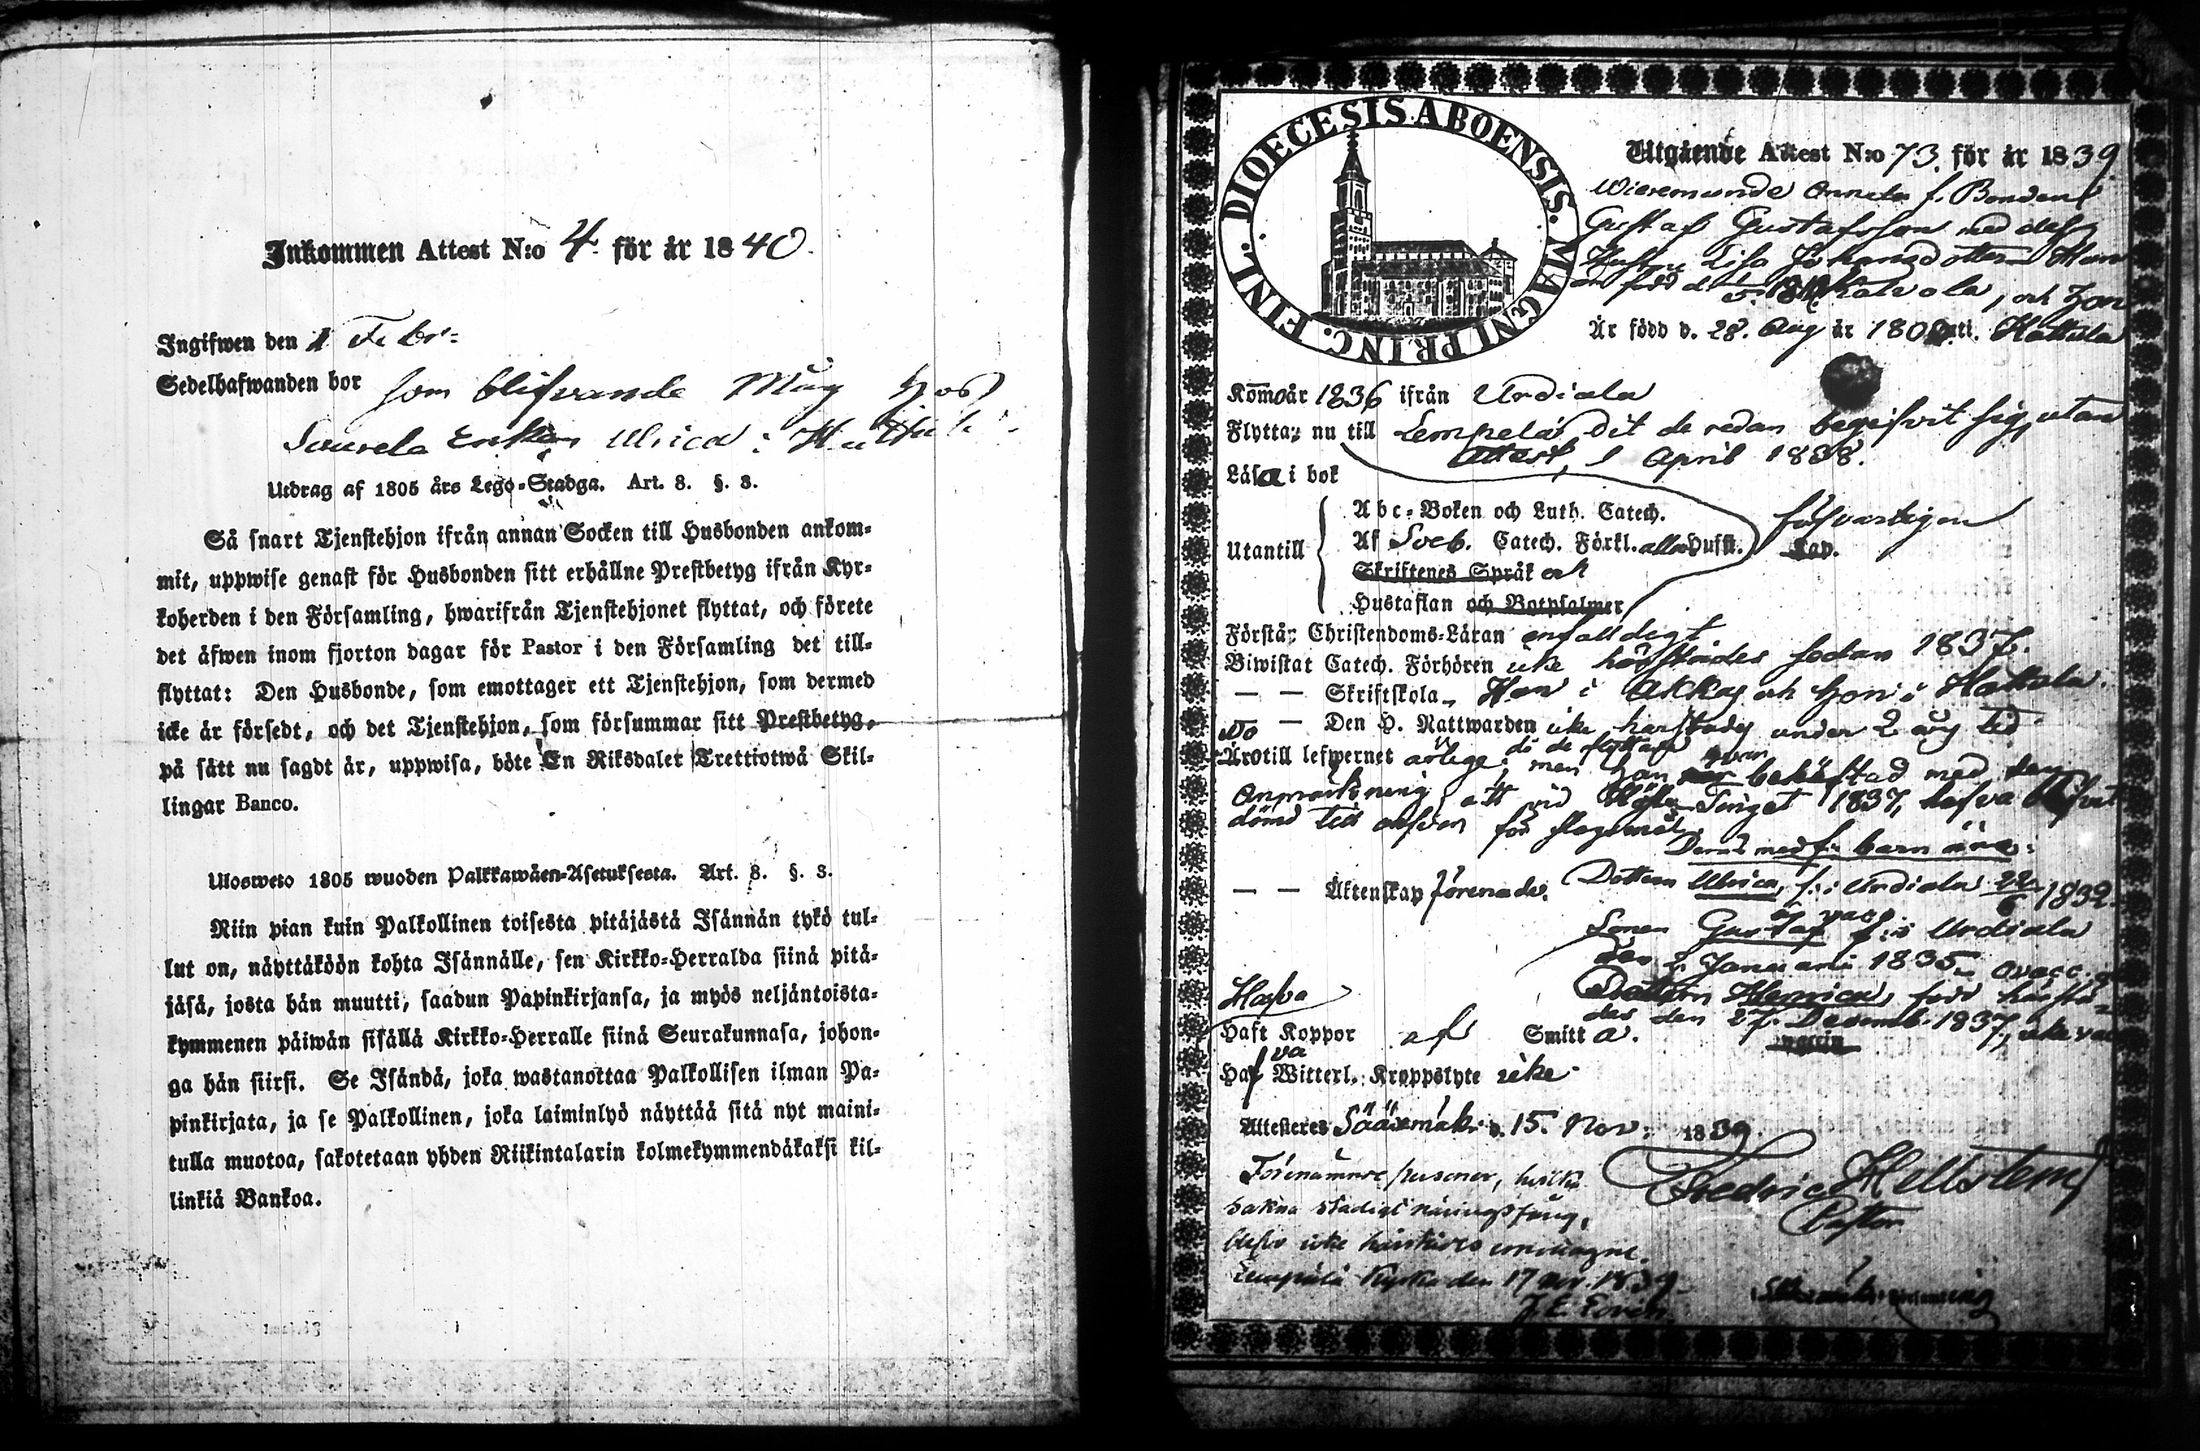 Inkommen Attest N:o 4. för år 1840.
Ingifwen den 1 Febr:
Sedelhafwanden bor som blifvande Måg hos
Saurela Enkan Ulrica i
Utdrag af 1805 års Lego-Stadga. Art. 8. §. 3.
Så snart Tjenstehjon ifrån annan Socken till Husbonden ankom-
mit, uppwise genast för Husbonden sitt erhållne Prestbetyg ifrån Kyr-
koherden i den Församling, hwarifrån Tjenstehjonet flyttat, och förete
det äfwen inom fjorton dagar för Pastor i den Församling det till-
flyttat: Den Husbonde, som emottager ett Tjenstehjon, som dermed
icke är försedt, och det Tjenstehjon, som försummar sitt Prestbetyg,
på sätt nu sagdt är, uppwisa, böte En Riksdaler Trettiotwå Skil-
lingar Banco.
Ulosweto 1805 wuoden Palkkawäen-Asetuksesta. Art. 8. §. 3.
Niin pian kuin Palkollinen toisesta pitäjästä Isännän tykö tul-
lut on, näyttäköön kohta Isännälle, sen Kirkko-Herralda siinä pitä-
jäsä, josta hän muutti, saadun Papinkirjansa, ja myös neljäntoista-
kymmenen päiwän sisällä Kirkko-Herralle siinä Seurakunnasa, johon-
ga hän siirsi. Se Isändä, joka wastanottaa Palkollisen ilman Pa-
pinkirjata, ja se Palkollinen, joka laiminlyö näyttää sitä nyt maini-
tulla muotoa, sakotetaan yhden Riikintalarin kolmekymmendäkaksi kil-
linkiä Bankoa.
DIOECESIS ABOENSIS. MAGNI PRINC. FINL.
Utgående Attest N:o 73. för år 1839
f. Bonden
Gustaf Gustafsson med dess
Hustru Lisa Johansdotter Han
född d. Kalvola, och hon
Är född d. 28. Aug år 180 uti. Hattula
Kom år 1836 ifrån Urdiala
Flyttar nu till Lempelä, dit de redan begifvit sig, utan
Attest, 1 April 1838.
Läsa i bok
Utantill
Abc-Boken och Luth. Catech.
Af Sveb. Catech. Förkl. alla Hufst. Kap.
försvarligen
Skriftenes Språk och
Hustaflan och Botpsalmer
Förstår Christendoms-Läran enfalldigt.
Biwistat Catech. Förhören icke härstädes sedan 1837.
— — Skriftskola Han i Akkas och hon i Hattula.
— Den H. Nattwarden icke härstädes under 2 års tid
Äro till lefwernet ärlige, då de flyttade men han är behäftad med den
Anmärkning, att vid Höste Tinget 1837, hafva blifvit
dömd till ansvar för slagsmål.
Deras medf: barn äro:
— — Äktenskap förenade. Dottern Ulrica, f: i Urdiala 1832.
är vacc.
Sonen Gustaf f: i Urdiala
den 2 Januari 1835,
Dottern Henrica, född härstä-
des den 27. Decemb. 1837, icke vac
Hafva
Haft Koppor af Smitta.
Hafva Witterl. Kroppslyte icke
Attesteres Sääxmäki d. 15. Nov: 1839.
Fredric Hellstén
Pastor
Förenämnde personer, hvilka
sakna stadigt näringsfång,
blefvo icke härstädes emottagne.
Lempälä Kyrka den 17 Nov. 1839.